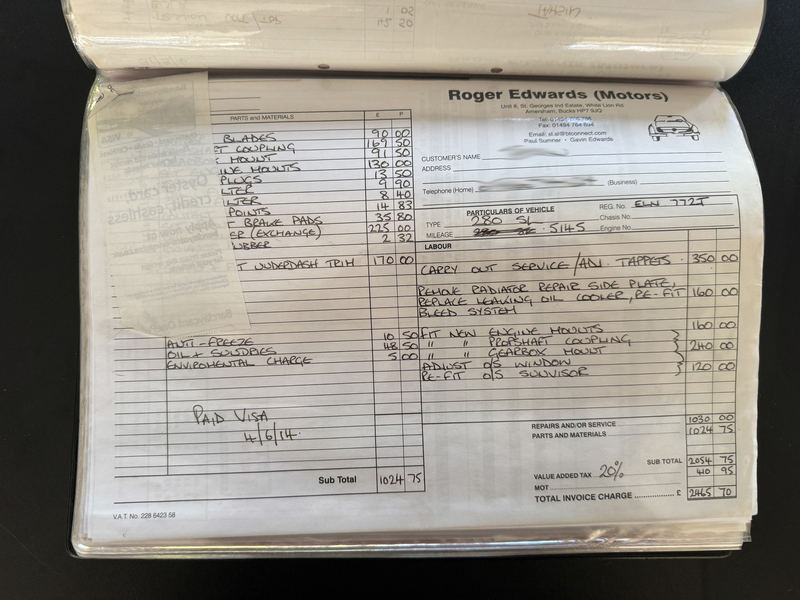 PARTS and MATERIALS £ P
BLADES 90 00
T COUPLING 169 50
MOUNT 91 50
INE MOUNTS 130 00
PLUGS 13 50
LTER 9 90
LTER 8 40
POINTS 14 83
T BRAKE PADS 35 80
ER (EXCHANGE) 225 00
UBBER 2 32
T UNDERDASH TRIM 170 00
ANTI-FREEZE 10 50
OIL + SUNDRIES 48 50
ENVIROMENTAL CHARGE 5 00
PAID VISA
4/6/14.
Sub Total 1024 75
V.A.T. No. 228 6423 56
Roger Edwards (Motors)
Unit 8, St. Georges Ind Estate, White Lion Rd
Amersham, Bucks HP7 9JQ
Fax: 01494 764 694
Email: sl.sl@btconnect.com
Paul Sumner • Gavin Edwards
CUSTOMER'S NAME
ADDRESS
Telephone (Home) (Business)
PARTICULARS OF VEHICLE REG. No. ELW 772J
TYPE 280 SL Chassis No.
MILEAGE 5145 Engine No.
LABOUR
CARRY OUT SERVICE/ADJ. TAPPETS. 350 00
REMOVE RADIATOR REPAIR SIDE PLATE,
REPLACE LEAKING OIL COOLER, RE-FIT 160 00
BLEED SYSTEM
FIT NEW ENGINE MOUNTS 160 00
" " PROPSHAFT COUPLING
" " GEARBOX MOUNT 240 00
ADJUST O/S WINDOW
RE-FIT O/S SUNVISOR 120 00
REPAIRS AND/OR SERVICE 1030 00
PARTS AND MATERIALS 1024 75
SUB TOTAL 2054 75
VALUE ADDED TAX 20% 410 95
MOT
TOTAL INVOICE CHARGE £ 2465 70